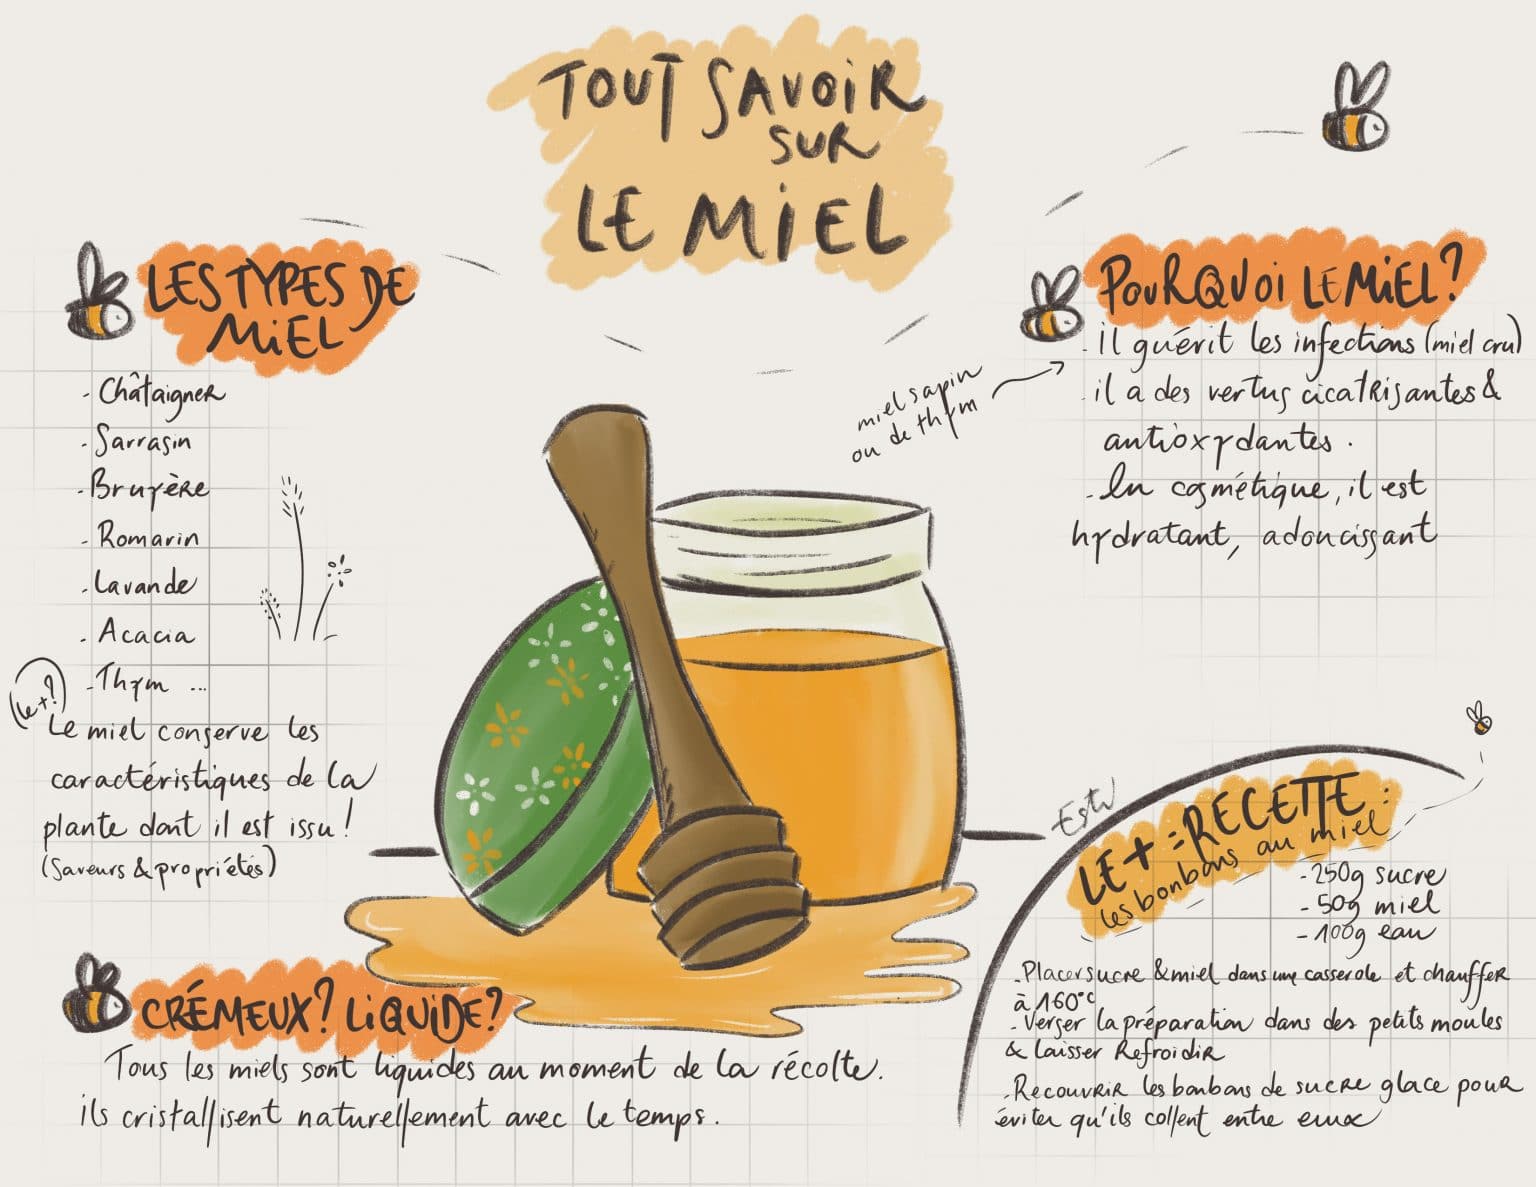 TOUT SAVOiR
SUR
LE MiEL
LES TYPES DE
MiEL
- Châtaigner
- Sarrasin
- Bruyère
- Romarin
- Lavande
- Acacia
- Thym ...
(le+?)
Le miel conserve les
caractéristiques de la
plante dont il est issu !
(Saveurs & propriétés)
POURQUOi LE MiEL ?
- il guérit les infections (miel cru)
miel sapin
ou de thym
- il a des vertus cicatrisantes &
antioxydantes.
- En cosmétique, il est
hydratant, adoucissant
CRÉMEUX ? LiQUiDE ?
Tous les miels sont liquides au moment de la récolte.
ils cristallisent naturellement avec le temps.
LE + : RECETTE :
les bonbons au miel
- 250g sucre
- 50g miel
- 100g eau
- Placer sucre & miel dans une casserole et chauffer
à 160°C
- Verser la préparation dans des petits moules
& laisser Refroidir
- Recouvrir les bonbons de sucre glace pour
éviter qu'ils collent entre eux